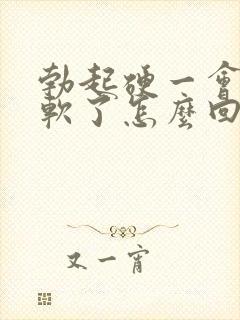 勃起硬一會
軟了怎麼回
又一宵